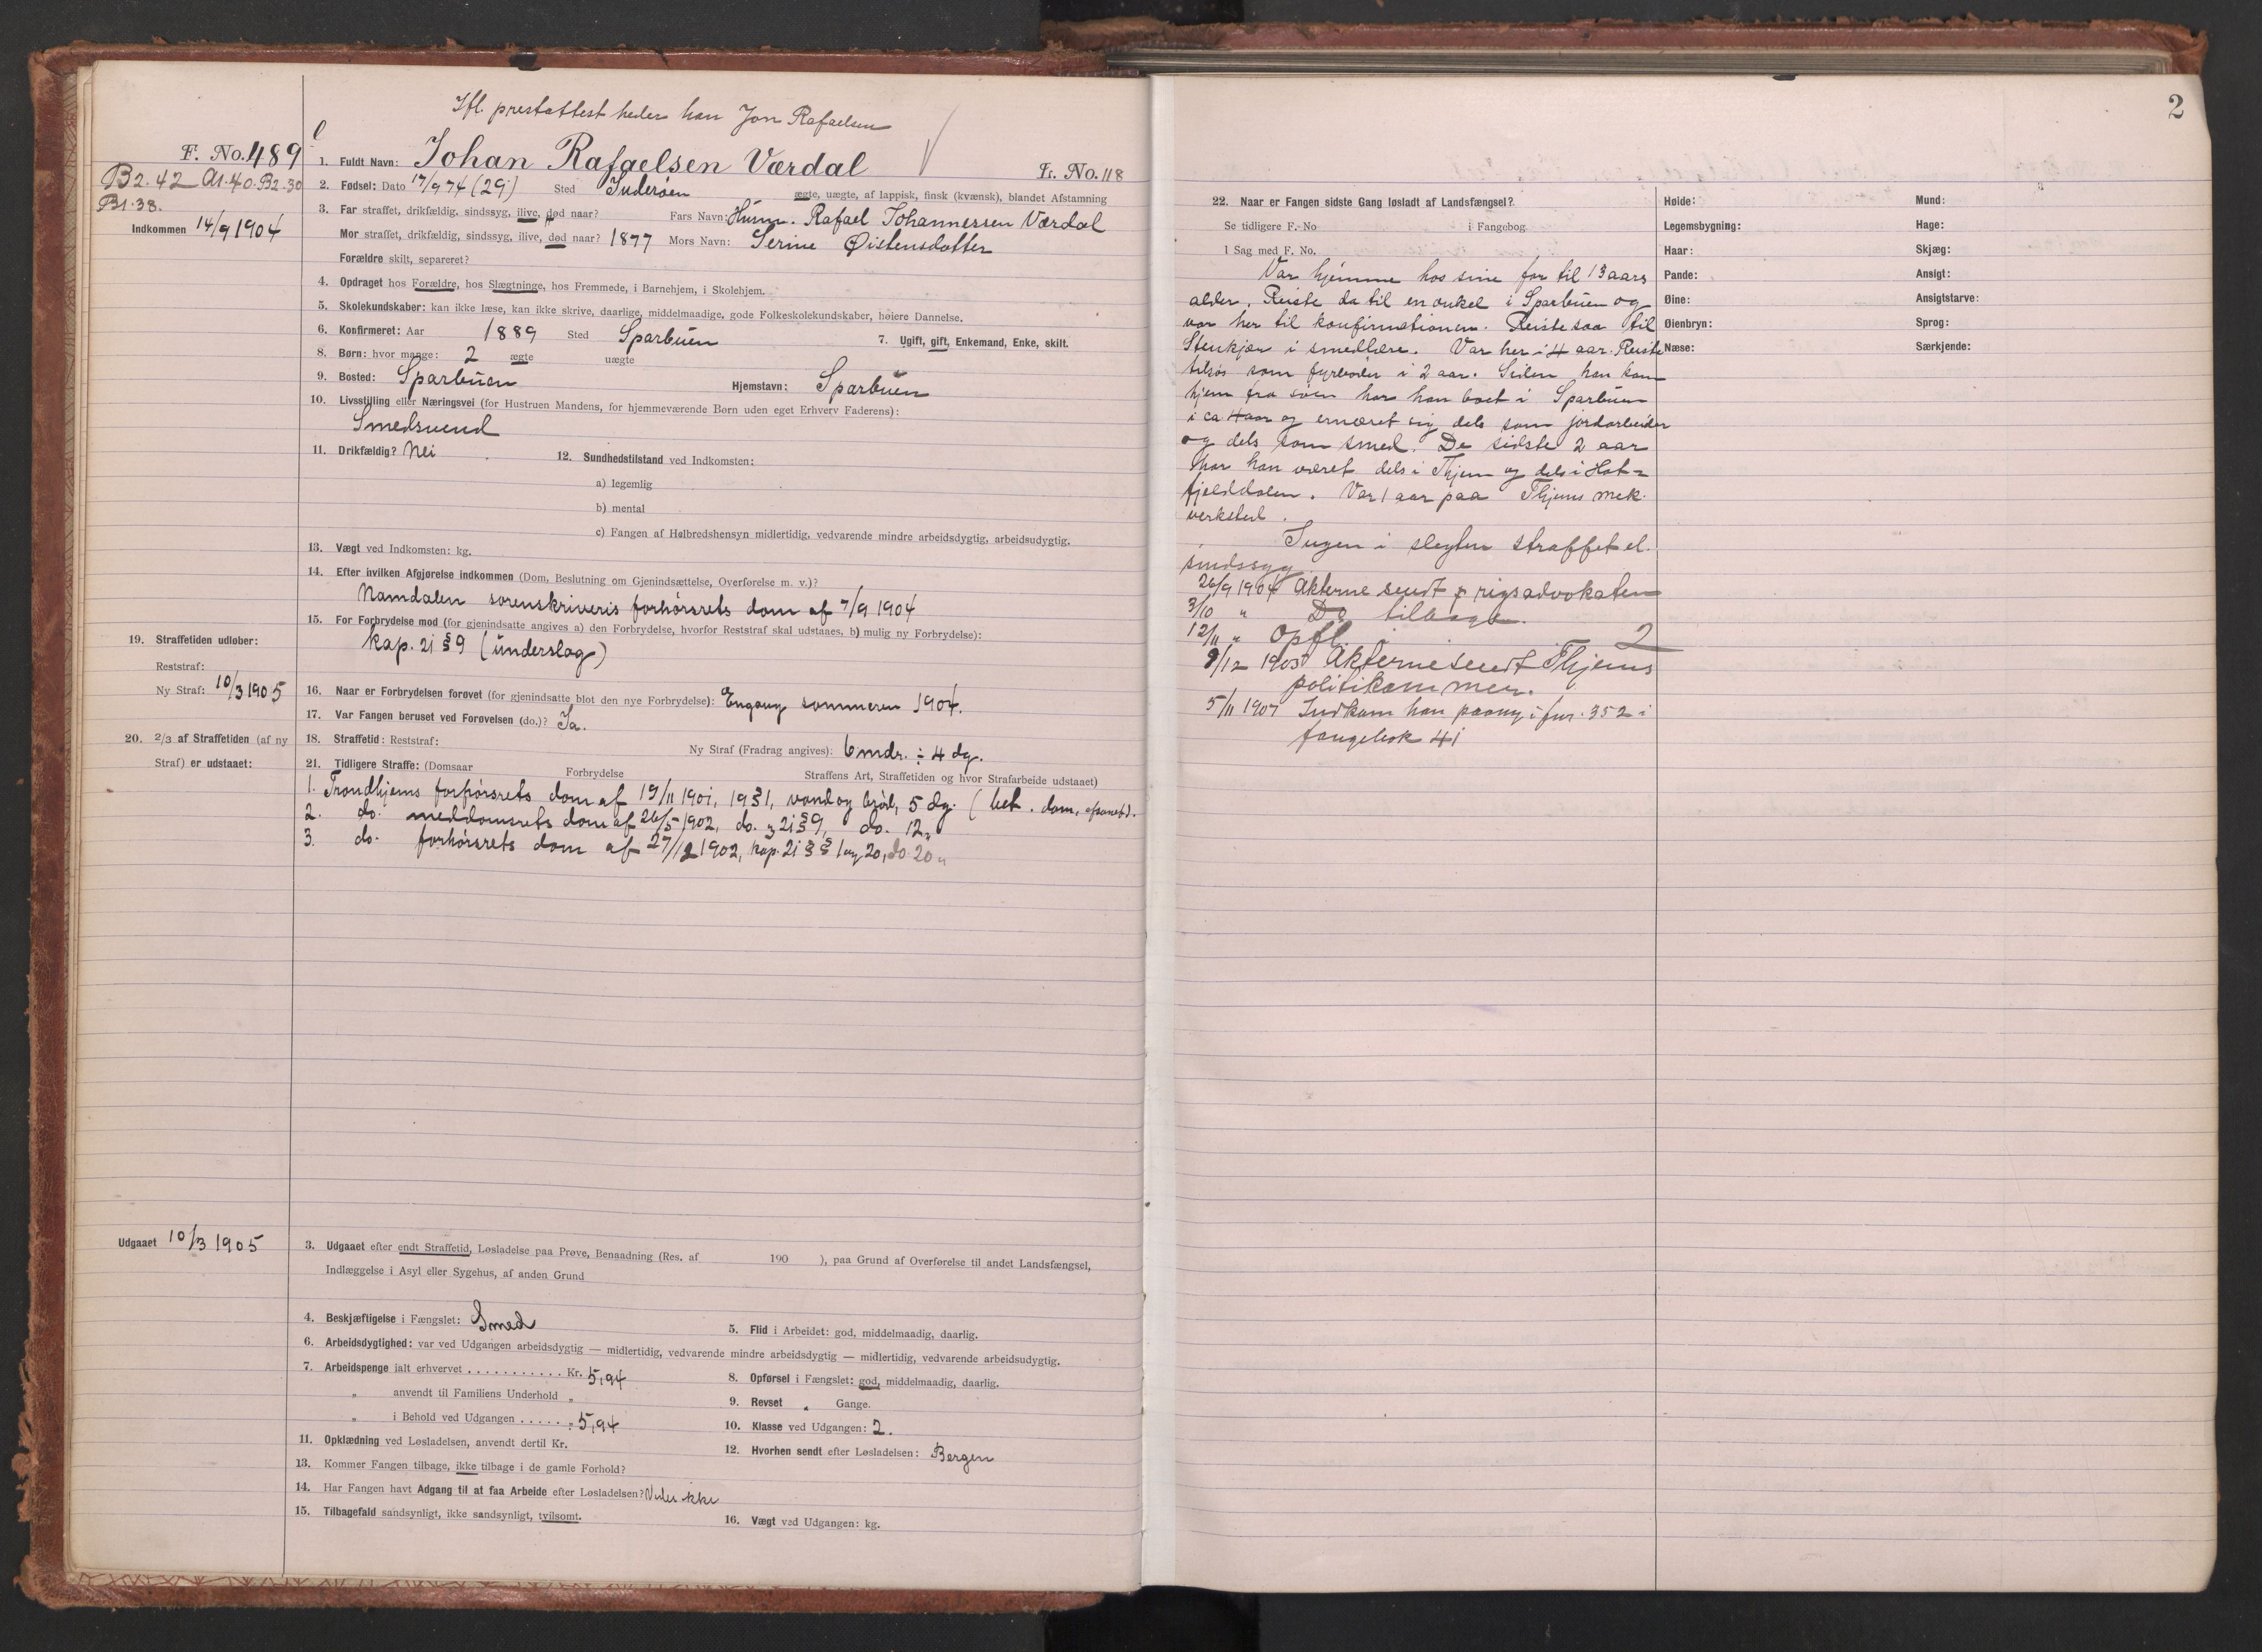 Ifl. prestattest heder han Jon Rafaelsen
F. No. 489
1. Fuldt Navn: Johan Rafaelsen Værdal
L. No. 118
B2.42 A1.40. B2.30
B1.38.
2. Fødsel: Dato 17/9 74 (29) Sted Inderøen ægte, uægte, af lappisk, finsk (kvænsk), blandet Afstamning
Indkommen 14/9 1904
3. Far straffet, drikfældig, sindssyg, ilive, død naar? Fars Navn: Husm. Rafael Johannessen Værdal
Mor straffet, drikfældig, sindssyg, ilive, død naar? 1877 Mors Navn: Serine Øistensdatter
Forældre skilt, separeret?
4. Opdraget hos Forældre, hos Slægtninge, hos Fremmede, i Barnehjem, i Skolehjem.
5. Skolekundskaber: kan ikke læse, kan ikke skrive, daarlige, middelmaadige, gode Folkeskolekundskaber, høiere Dannelse.
6. Konfirmeret: Aar 1889 Sted Sparbuen 7. Ugift, gift, Enkemand, Enke, skilt.
8. Børn: hvor mange: 2 ægte uægte
9. Bosted: Sparbuen Hjemstavn: Sparbuen
10. Livsstilling eller Næringsvei (for Hustruen Mandens, for hjemmeværende Børn uden eget Erhverv Faderens):
Smedsvend
11. Drikfældig? Nei 12. Sundhedstilstand ved Indkomsten:
a) legemlig
b) mental
c) Fangen af Helbredshensyn midlertidig, vedvarende mindre arbeidsdygtig, arbeidsudygtig.
13. Vægt ved Indkomsten: kg.
14. Efter hvilken Afgjørelse indkommen (Dom, Beslutning om Gjenindsættelse, Overførelse m. v.)?
Namdalen sorenskriveris forhørsrets dom af 7/9 1904
15. For Forbrydelse mod (for gjenindsatte angives a) den Forbrydelse, hvorfor Reststraf skal udstaaes, b) mulig ny Forbrydelse):
Kap. 21 § 9 (underslag)
19. Straffetiden udløber:
Reststraf:
Ny Straf: 10/3 1905
16. Naar er Forbrydelsen forøvet (for gjenindsatte blot den nye Forbrydelse): Engang sommeren 1904.
17. Var Fangen beruset ved Forøvelsen (do.)? Ja.
20. 2/3 af Straffetiden (af ny
Straf) er udstaaet:
18. Straffetid: Reststraf: Ny Straf (Fradrag angives): 6 mdr. ÷ 4 dg.
21. Tidligere Straffe: (Domsaar Forbrydelse Straffens Art, Straffetiden og hvor Strafarbeide udstaaet)
1. Trondhjems forhørsrets dom af 19/11 1901, 19 § 1, vand og brød, 5 dg. (bet. dom, afsonet).
2. do. meddomsrets dom af 26/5 1902, do. 21 § 9, do. 12 "
3. do. forhørsrets dom af 27/12 1902, kap. 21 § § 1 og 20, do. 20 "
Udgaaet 10/3 1905
3. Udgaaet efter endt Straffetid, Løsladelse paa Prøve, Benaadning (Res. af 190 ), paa Grund af Overførelse til andet Landsfængsel,
Indlæggelse i Asyl eller Sygehus, af anden Grund
4. Beskjæftigelse i Fængslet: Smed 5. Flid i Arbeidet: god, middelmaadig, daarlig.
6. Arbeidsdygtighed: var ved Udgangen arbeidsdygtig — midlertidig, vedvarende mindre arbeidsdygtig — midlertidig, vedvarende arbeidsudygtig.
7. Arbeidspenge ialt erhvervet . . . . . . . . . . . Kr. 5,94 8. Opførsel i Fængslet: god, middelmaadig, daarlig.
" anvendt til Familiens Underhold " 9. Revset " Gange.
" i Behold ved Udgangen . . . . . " 5,94 10. Klasse ved Udgangen: 2.
11. Opklædning ved Løsladelsen, anvendt dertil Kr. 12. Hvorhen sendt efter Løsladelsen: Bergen
13. Kommer Fangen tilbage, ikke tilbage i de gamle Forhold?
14. Har Fangen havt Adgang til at faa Arbeide efter Løsladelsen? Vides ikke
15. Tilbagefald sandsynligt, ikke sandsynligt, tvilsomt. 16. Vægt ved Udgangen: kg.
2
22. Naar er Fangen sidste Gang løsladt af Landsfængsel?
Se tidligere F. No i Fangebog
I Sag med F. No.
Var hjemme hos sine for til 13 aars
alder. Reiste da til en onkel i Sparbuen og
var her til konfirmationen. Reiste saa til
Stenkjær i smedlære. Var her i 4 aar. Reiste
tilsøs som fyrbøder i 2 aar. Siden han kom
hjem fra søen har han boet i Sparbuen
i ca 4 aar og ernæret sig dels som jordarbeider
og dels som smed. De sidste 2 aar
har han været dels i Thjem og dels i Hat=
fjelddalen. Var 1 aar paa Thjems mek.
verksted.
Ingen i slegten straffet el.
sindssyg
26/9 1904 Akterne sendt rigsadvokaten
3/10 " Do tilbage.
12/11 " Opfl. i 2
9/12 1905 Akterne sendt Thjems
politikammer.
5/11 1907 Indkom han paany i fnr. 352 i
fangebok 41
Høide:
Legemsbygning:
Haar:
Pande:
Øine:
Øienbryn:
Næse:
Mund:
Hage:
Skjæg:
Ansigt:
Ansigtsfarve:
Sprog:
Særkjende: